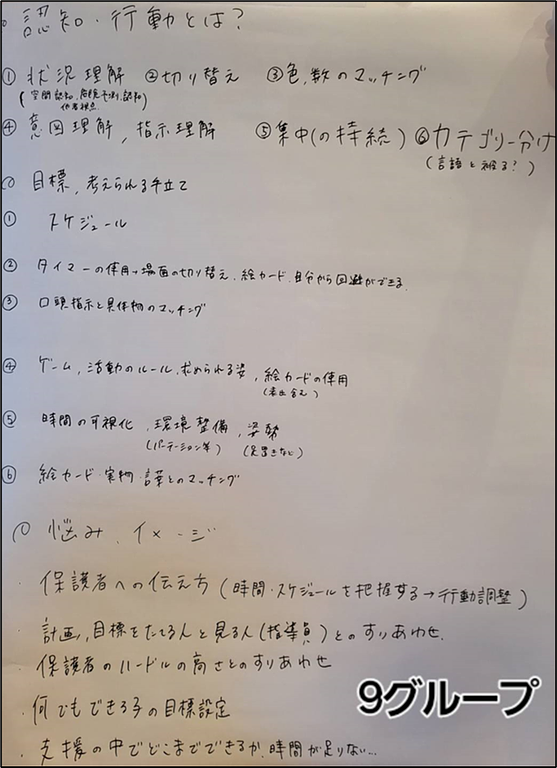 認知・行動とは?
① 状況理解 ②切り替え ③色,数のマッチング
(空間認知,危険予測,認知
他者視点)
④ 意図理解,指示理解 ⑤集中(の持続) ⑥カテゴリー分け
(言語と被る?)
○ 目標,考えられる手立て
① スケジュール
② タイマーの使用→場面の切り替え,絵カード,自分から回避ができる
③ 口頭指示と具体物のマッチング
④ ゲーム,活動のルール,求められる姿,絵カードの使用
(表出含む)
⑤ 時間の可視化,環境整備,姿勢
(パーテーション等) (足置きなど)
⑥ 絵カード・実物・言葉とのマッチング
○ 悩み,イメージ
・保護者への伝え方(時間・スケジュールを把握する→行動調整)
・計画,目標をたてる人と見る人(指導員)とのすりあわせ
・保護者のハードルの高さとのすりあわせ
・何でもできる子の目標設定
・支援の中でどこまでできるか,時間が足りない…
9グループ